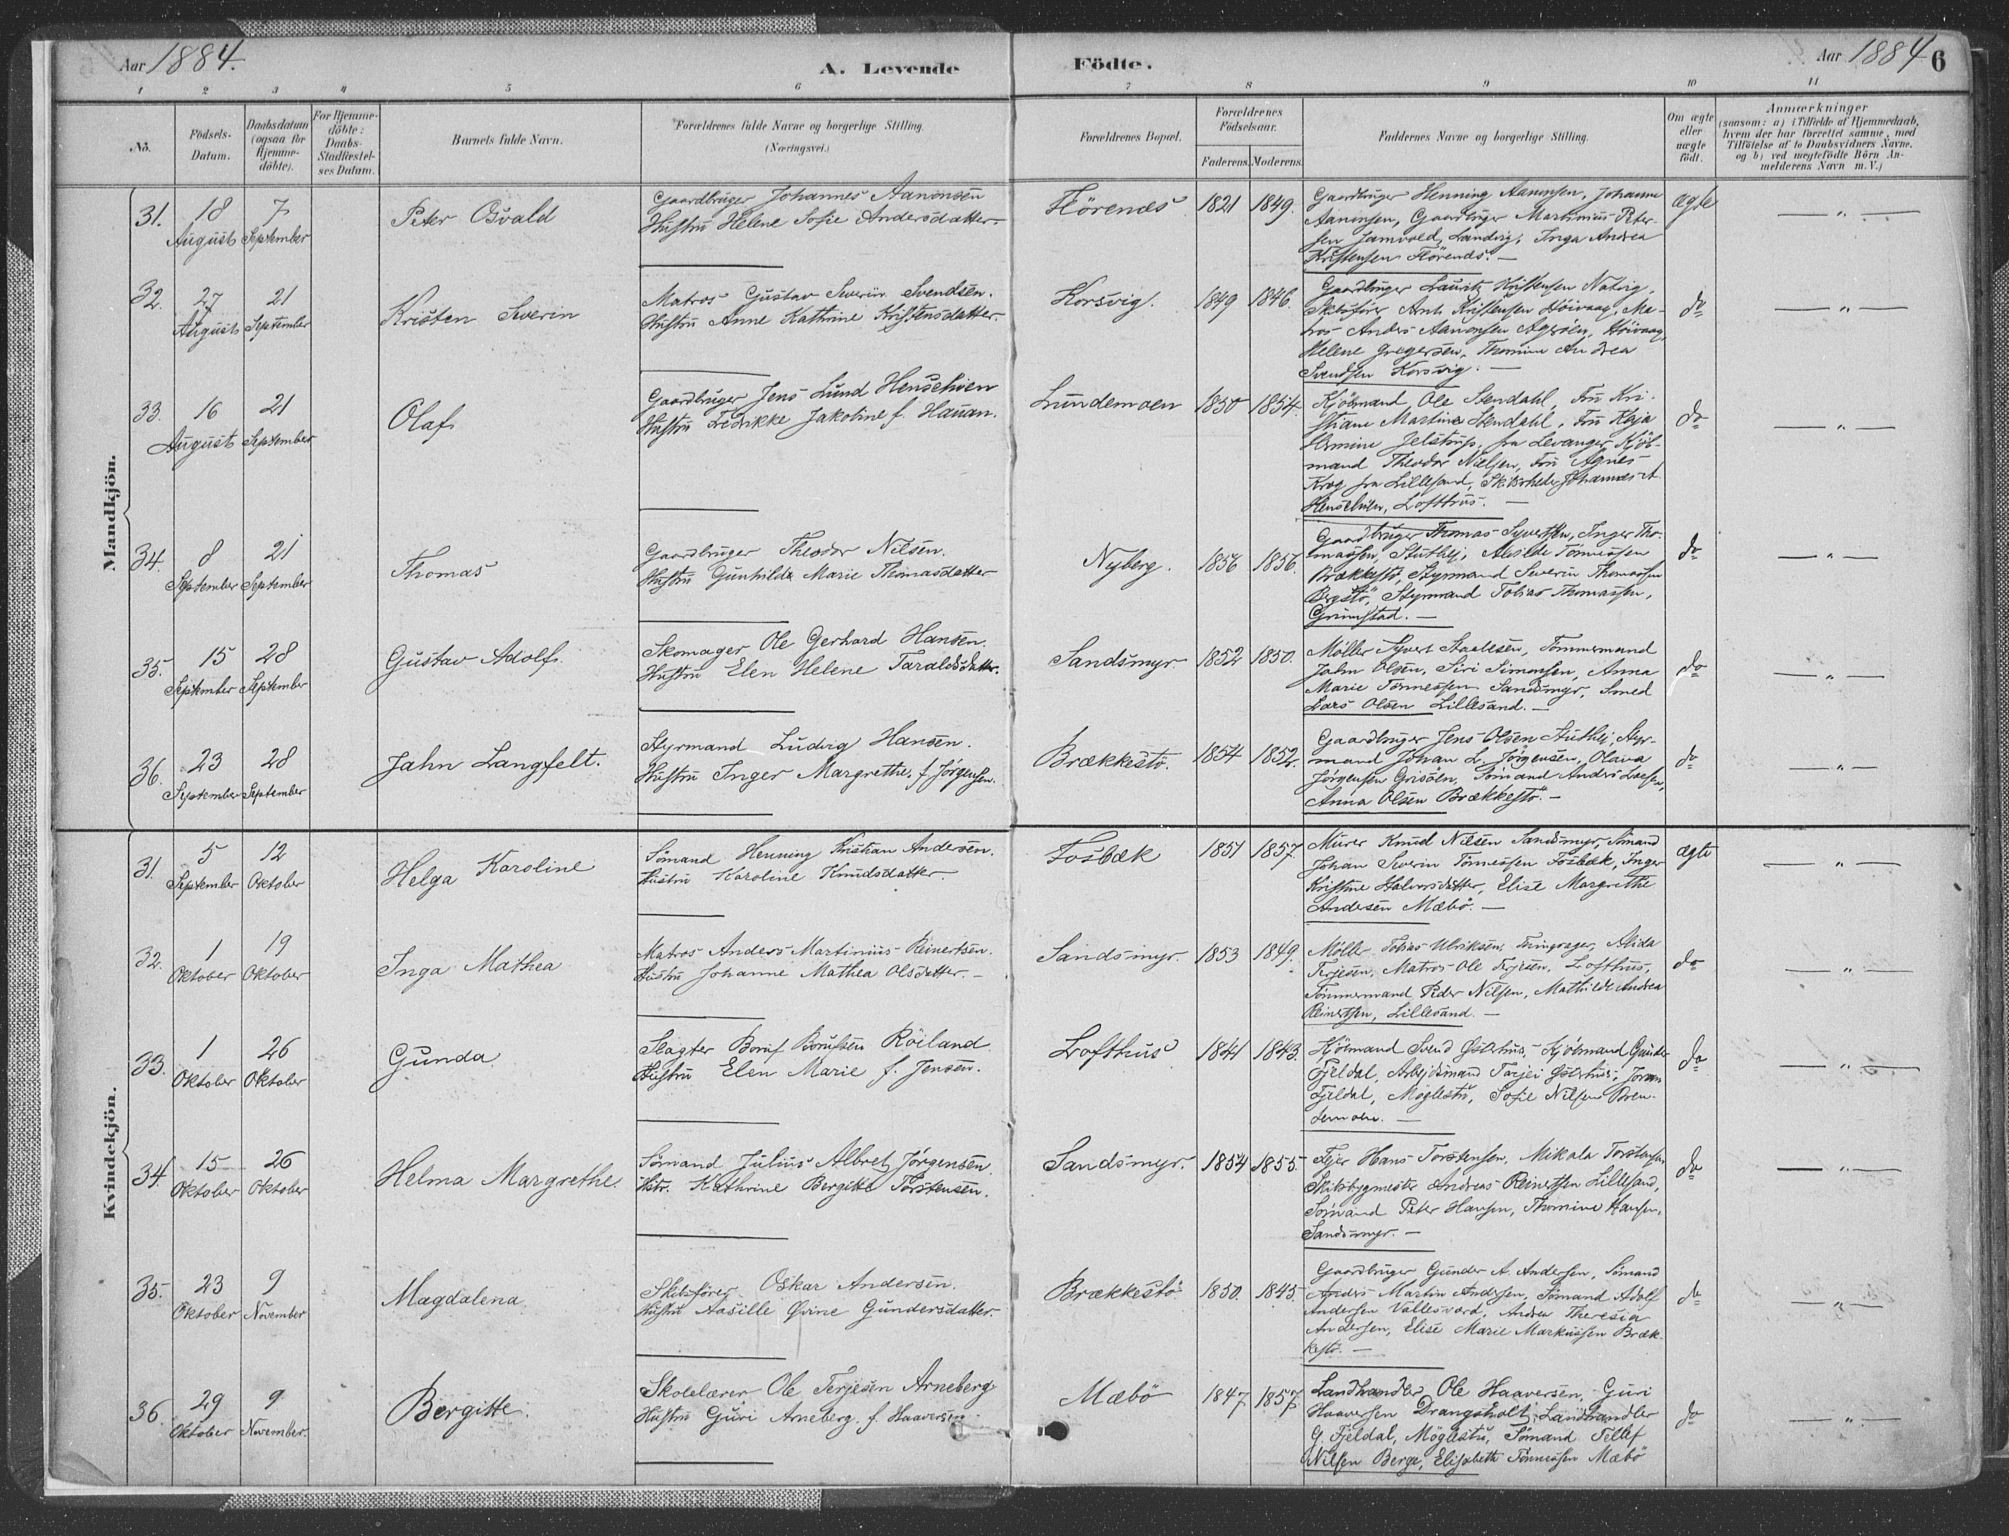 Aar 1884.
A. Levende
Födte.
Aar 1884
6
1 2 3 4 5 6 7 8 9 10 11
No.
Födsels-
Datum.
Daabsdatum
(ogsaa for
Hjemme-
döbte).
For Hjemme-
döbte:
Daabs-
Stadfæstel-
ses Datum.
Barnets fulde Navn.
Forældrenes fulde Navne og borgerlige Stilling.
(Næringsvei.)
Forældrenes Bopæl.
Forældrenes
Födselsaar.
Faderens.
Moderens.
Faddernes Navne og borgerlige Stilling.
Om ægte
eller
uægte
födt.
Anmærkninger
(saasom: a) i Tilfælde af Hjemmedaab,
hvem der har forrettet samme, med
Tilföielse af to Daabsvidners Navne.
og b) ved uægtefödte Börn An-
melderens Navn m. V.)
Mandkjön.
31.
18
August
7
September
Peter Osvald
Gaardbruger Johannes Aanonsen
Hustru Helene Sofie Andersdatter.
Flörenæs
1821
1849.
Gaardbruger Henning Aanonsen, Johanne
Aanonsen, Gaardbruger Martinius Peter-
sen Jamvold, Landvig, Inga Andrea
Kristensen Flörenæs. —
Ægte
— " —
32.
27
August
21
September
Kristen Severin
Matros Gustav Severin Svendsen.
Hustru Anne Kathrine Kristensdatter.
Korsvig.
1849
1846.
Gaardbruger Lauritz Kristensen Natvig,
Skibsförer Arnt Kristensen Höivaag, Ma-
tros Anders Aanonsen Ageröen, Höivaag,
Helene Gregersen, Thomine Andrea
Svendsen Korsvig. —
do
— " —
33.
16
August
21
September
Olaf
Gaardbruger Jens Lund Henschien
Hustru Fredrikke Jakoline f. Hauan.
Lundemoen
1850
1854.
Kjöbmand Ole Stendahl, Fru Kri-
stiane Martine Stendahl, Fru Kaja
Hermine Jelstrup, fra Levanger, Kjöb-
mand Theodor Nielsen, Fru Agnes
Krog fra Lillesand, Skibsrheder Johannes A.
Henschien, Lofthus. —
do
— " —
34.
8
September
21
September
Thomas
Gaardbruger Theodor Nilsen.
Hustru Gunhilde Marie Thomasdatter
Nyberg.
1856
1856.
Gaardbruger Thomas Syvertsen, Inger Tho-
massen, Stuthei, Alvilde Tönnessen
Brækkestö, Styrmand Severin Thomassen
Bergstö, Styrmand Tobias Thomassen,
Grimstad. —
do
— " —
35.
15
September
28
September
Gustav Adolf.
Skomager Ole Gerhard Hansen.
Hustru Elen Helene Taraldsdatter.
Sandsmyr
1852
1850.
Möller Syvert Staalesen, Tömmermand
Jahn Olsen, Siri Simonsen, Anna
Marie Tönnessen Sandsmyr, Smed
Lars Olsen Lillesand. —
do
— " —
36.
23
September
28
September
Jahn Langfelt.
Styrmand Ludvig Hansen.
Hustru Inger Margrethe f. Jörgensen.
Brækkestö.
1854
1852.
Gaardbruger Jens Olsen Stuthei, Styr-
mand Johan L. Jörgensen, Olava
Jörgensen Grisöen, Sömand Anders Larsen,
Anna Olsen Brækkestö. —
do
— " —
Kvindekjön.
31.
5
September
12
Oktober
Helga Karoline
Sömand Henning Kristian Andersen.
Hustru Karoline Knudsdatter.
Fosbæk
1851
1857.
Murer Knud Nilsen Sandsmyr, Sömand
Johan Severin Tönnessen Fosbæk, Inger
Kristine Halvorsdatter, Elise Margrethe
Andersen Mæbö. —
Ægte
— " —
32.
1
Oktober
19
Oktober
Inga Mathea
Matros Anders Martinius Reinertsen.
Hustru Johanne Mathea Olsdatter. —
Sandsmyr.
1853
1849.
Möller Tobias Ulriksen, Alida
Terjesen, Matros Ole Terjesen, Lofthus,
Tömmermand Peder Nilsen, Mathilde Andrea
Reinertsen, Lillesand. —
do
— " —
33.
1
Oktober
26
Oktober
Gunda
Slagter Boruf Borufsen Röiland.
Hustru Elen Marie f. Jensen.
Lofthus
1841
1843.
Kjöbmand Svend Österhus, Kjöbmand Gunder
Fjeldal, Arbejdsmand Tarjei Österhus, Joran
Fjeldal, Möglestu, Sofie Nilsen Bren-
demoen. —
do
— " —
34.
15
Oktober
26
Oktober
Helma Margrethe
Sömand Julius Albret Jörgensen.
Hstr. Kathrine Bergitte Torstensen.
Sandsmyr.
1854
1855.
Hans Torstensen, Mikala Torstensen
Skibsbygmester Andreas Reinertsen Lillesand,
Sömand Peter Hansen, Thomine Hansen,
Sandsmyr. —
do
— " —
35.
23
Oktober
9
November
Magdalena
Skibsförer Oskar Andersen.
Hustru Aasille Gundersdatter.
Brækkestö
1850.
1845.
Gaardbruger Gunder A. Andersen, Sömand
Anders Martin Andersen, Sömand Adolf
Andersen Vallesværd, Andrea Theresia
Andersen, Elise Marie Markussen Bræk-
kestö. —
do
— " —
36.
29
Oktober
9
November.
Bergitte.
Skolelærer Ole Terjesen Arneberg
Hustru Guri Arneberg. f. Haaversen
Mæbö
1847
1857.
Landhandler Ole Haaversen, Guri
Haaversen Drangsholt, Landhandler
G. Fjeldal, Möglestu, Sömand Tellef
Nilsen Berge, Elisabeth Tönnessen Mæbö
do
— " —